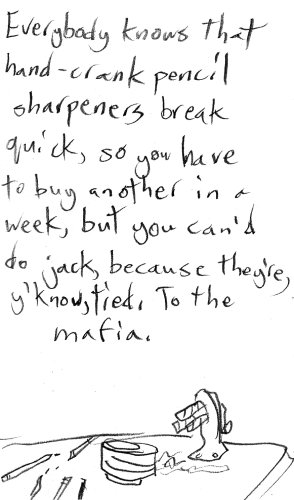 Everybody knows that
hand-crank pencil
sharpeners break
quick, so you have
to buy another in a
week, but you can'd
do jack, because they're,
y'know, tied. To the
mafia.